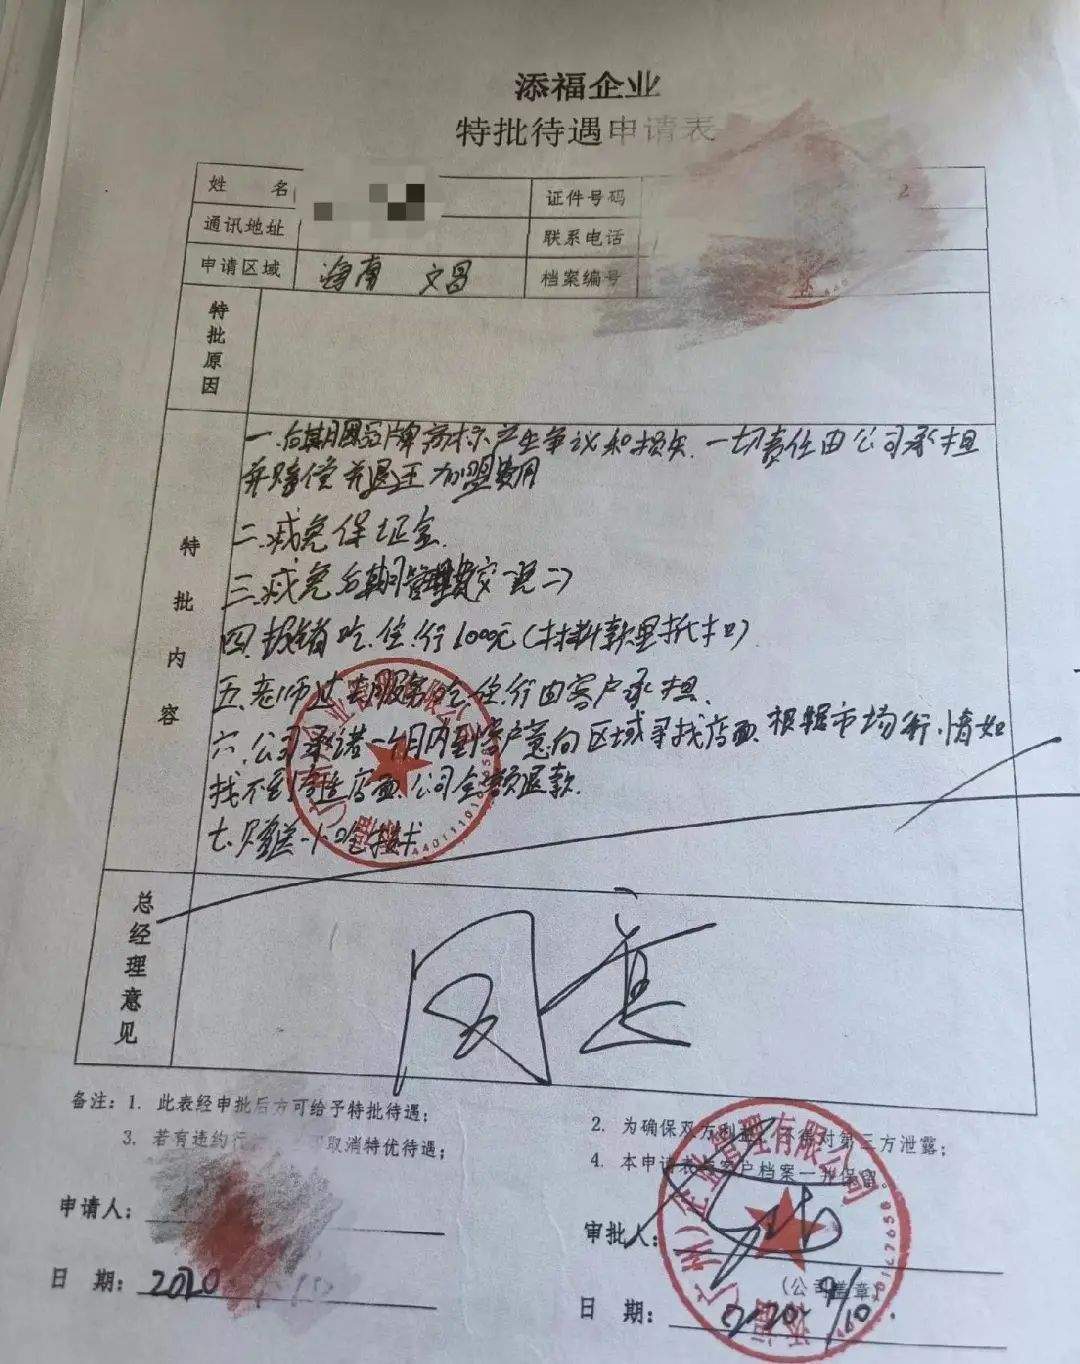 添福企业
特批待遇申请表
姓 名
证件号码 2
通讯地址
联系电话
申请区域 海南 文昌
档案编号
特批原因
特批内容
一.后期因品牌商标产生争议和损失.一切责任由公司承担
并赔偿并退还加盟费用
二.减免保证金
三.减免后期管理费
四.报销吃.住.行1000元(材料款里抵扣)
五.老师过去服务吃.住.行由客户承担.
六.公司承诺一个月内到客户意向区域寻找店面.根据市场行.情如
找不到合适店面.公司全额退款.
七.赠送小吃技术
总经理意见
同意
备注：1. 此表经申批后方可给予特批待遇；
2. 为确保双方利益，不得对第三方泄露；
3. 若有违约行 取消特优待遇；
4. 本申请表与客户档案一并保留。
申请人：
审批人：
(公司盖章)
日 期：2020
日 期：2020 9/10.
添福(广州)企业管理有限公司